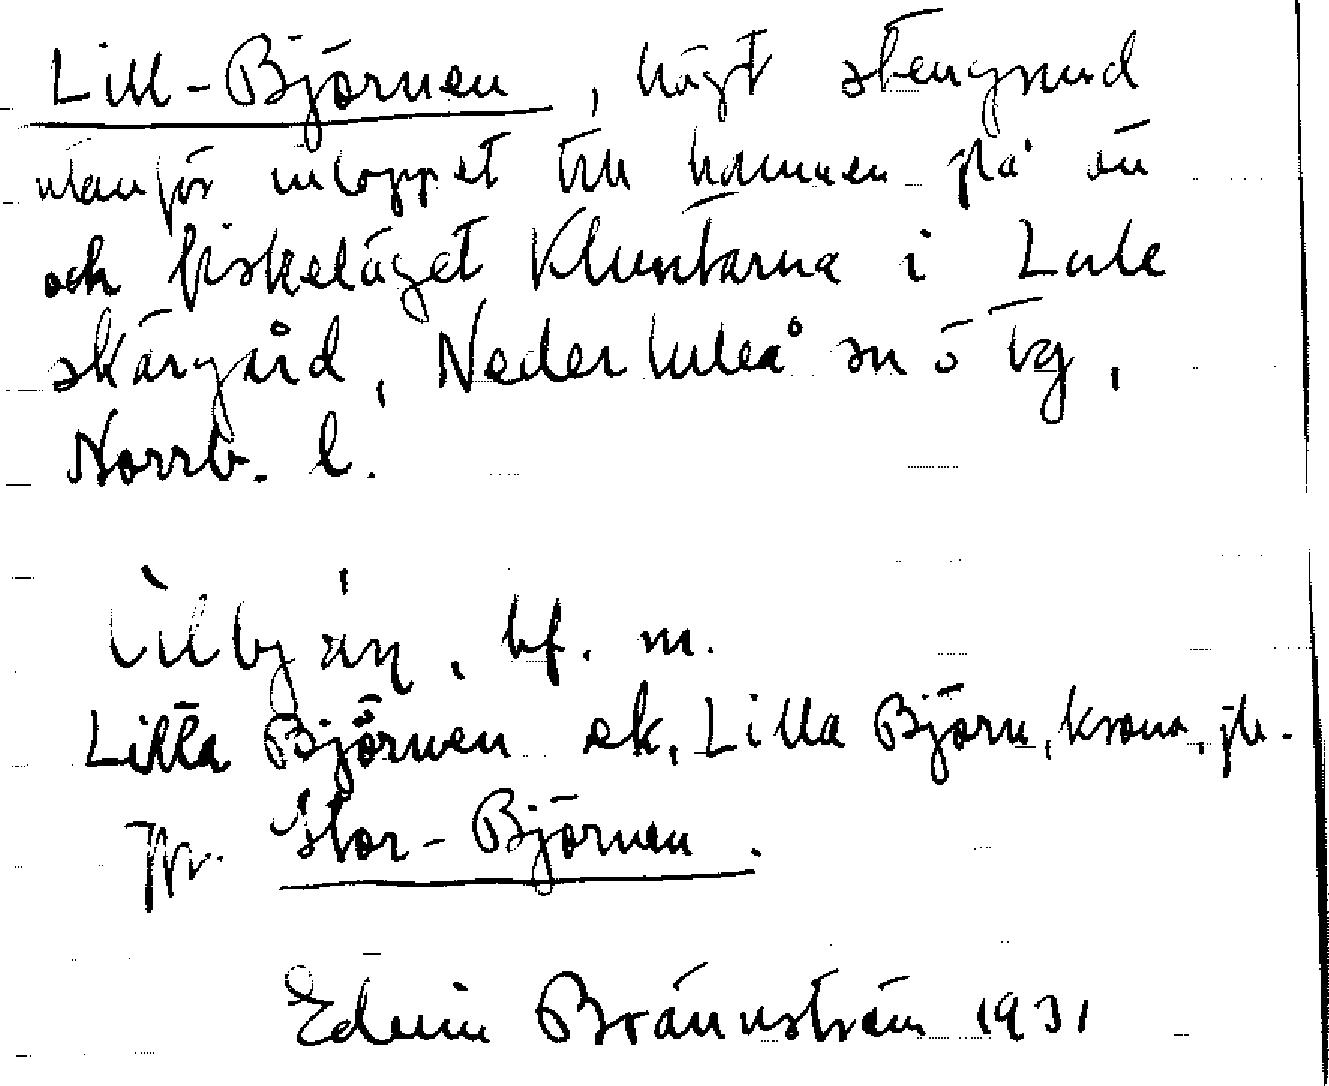 Lill-Björnen, högt stengrund
utanför inloppet till hamnen på ön
och fiskeläget Kluntarna i Lule
skärgård, Nederluleå sn ö tg,
Norrb. l.
bf. m.
Lilla Björnen ek, Lilla Björn, krono, jb.
Jfr. Stor-Björnen.
Edwin Brännström 1931